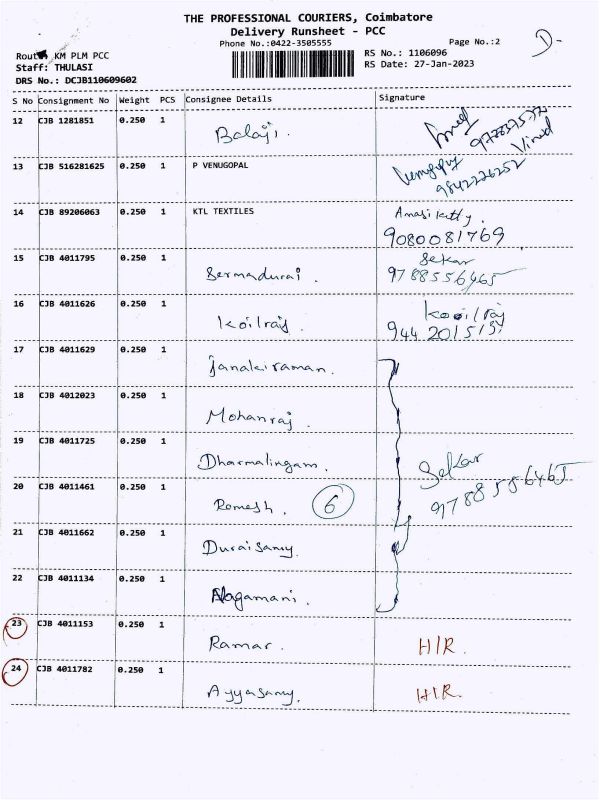 THE PROFESSIONAL COURIERS, Coimbatore
Delivery Runsheet - PCC
Phone No.:0422-3505555
Page No.:2
D-
KM PLM PCC
RS No.: 1106096
Staff: THULASI
RS Date: 27-Jan-2023
DRS No.: DCJB110609602
S No Consignment No Weight PCS Consignee Details Signature
12 CJB 1281851 0.250 1 Balaji.
Vinod
13 CJB 516281625 0.250 1 P VENUGOPAL
9842226252
14 CJB 89206063 0.250 1 KTL TEXTILES
9080081769
15 CJB 4011795 0.250 1 Sermadurai Sekar
9788556465
16 CJB 4011626 0.250 1 Koilraj Kooilraj
17 CJB 4011629 0.250 1 Janakiraman.
18 CJB 4012023 0.250 1 Mohanraj
19 CJB 4011725 0.250 1 Dharmalingam. Sekar
9788556465
20 CJB 4011461 0.250 1 Romesh. 6
21 CJB 4011662 0.250 1 Duraisamy
22 CJB 4011134 0.250 1 Nagamani.
23 CJB 4011153 0.250 1 Ramar. H/R.
24 CJB 4011782 0.250 1 Ayyasamy. H/R.